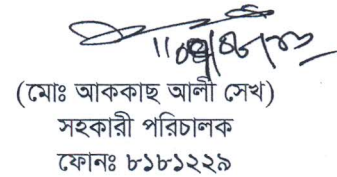 (মোঃ আককাছ আলী সেখ)
সহকারী পরিচালক
ফোনঃ ৮১৮১২২৯